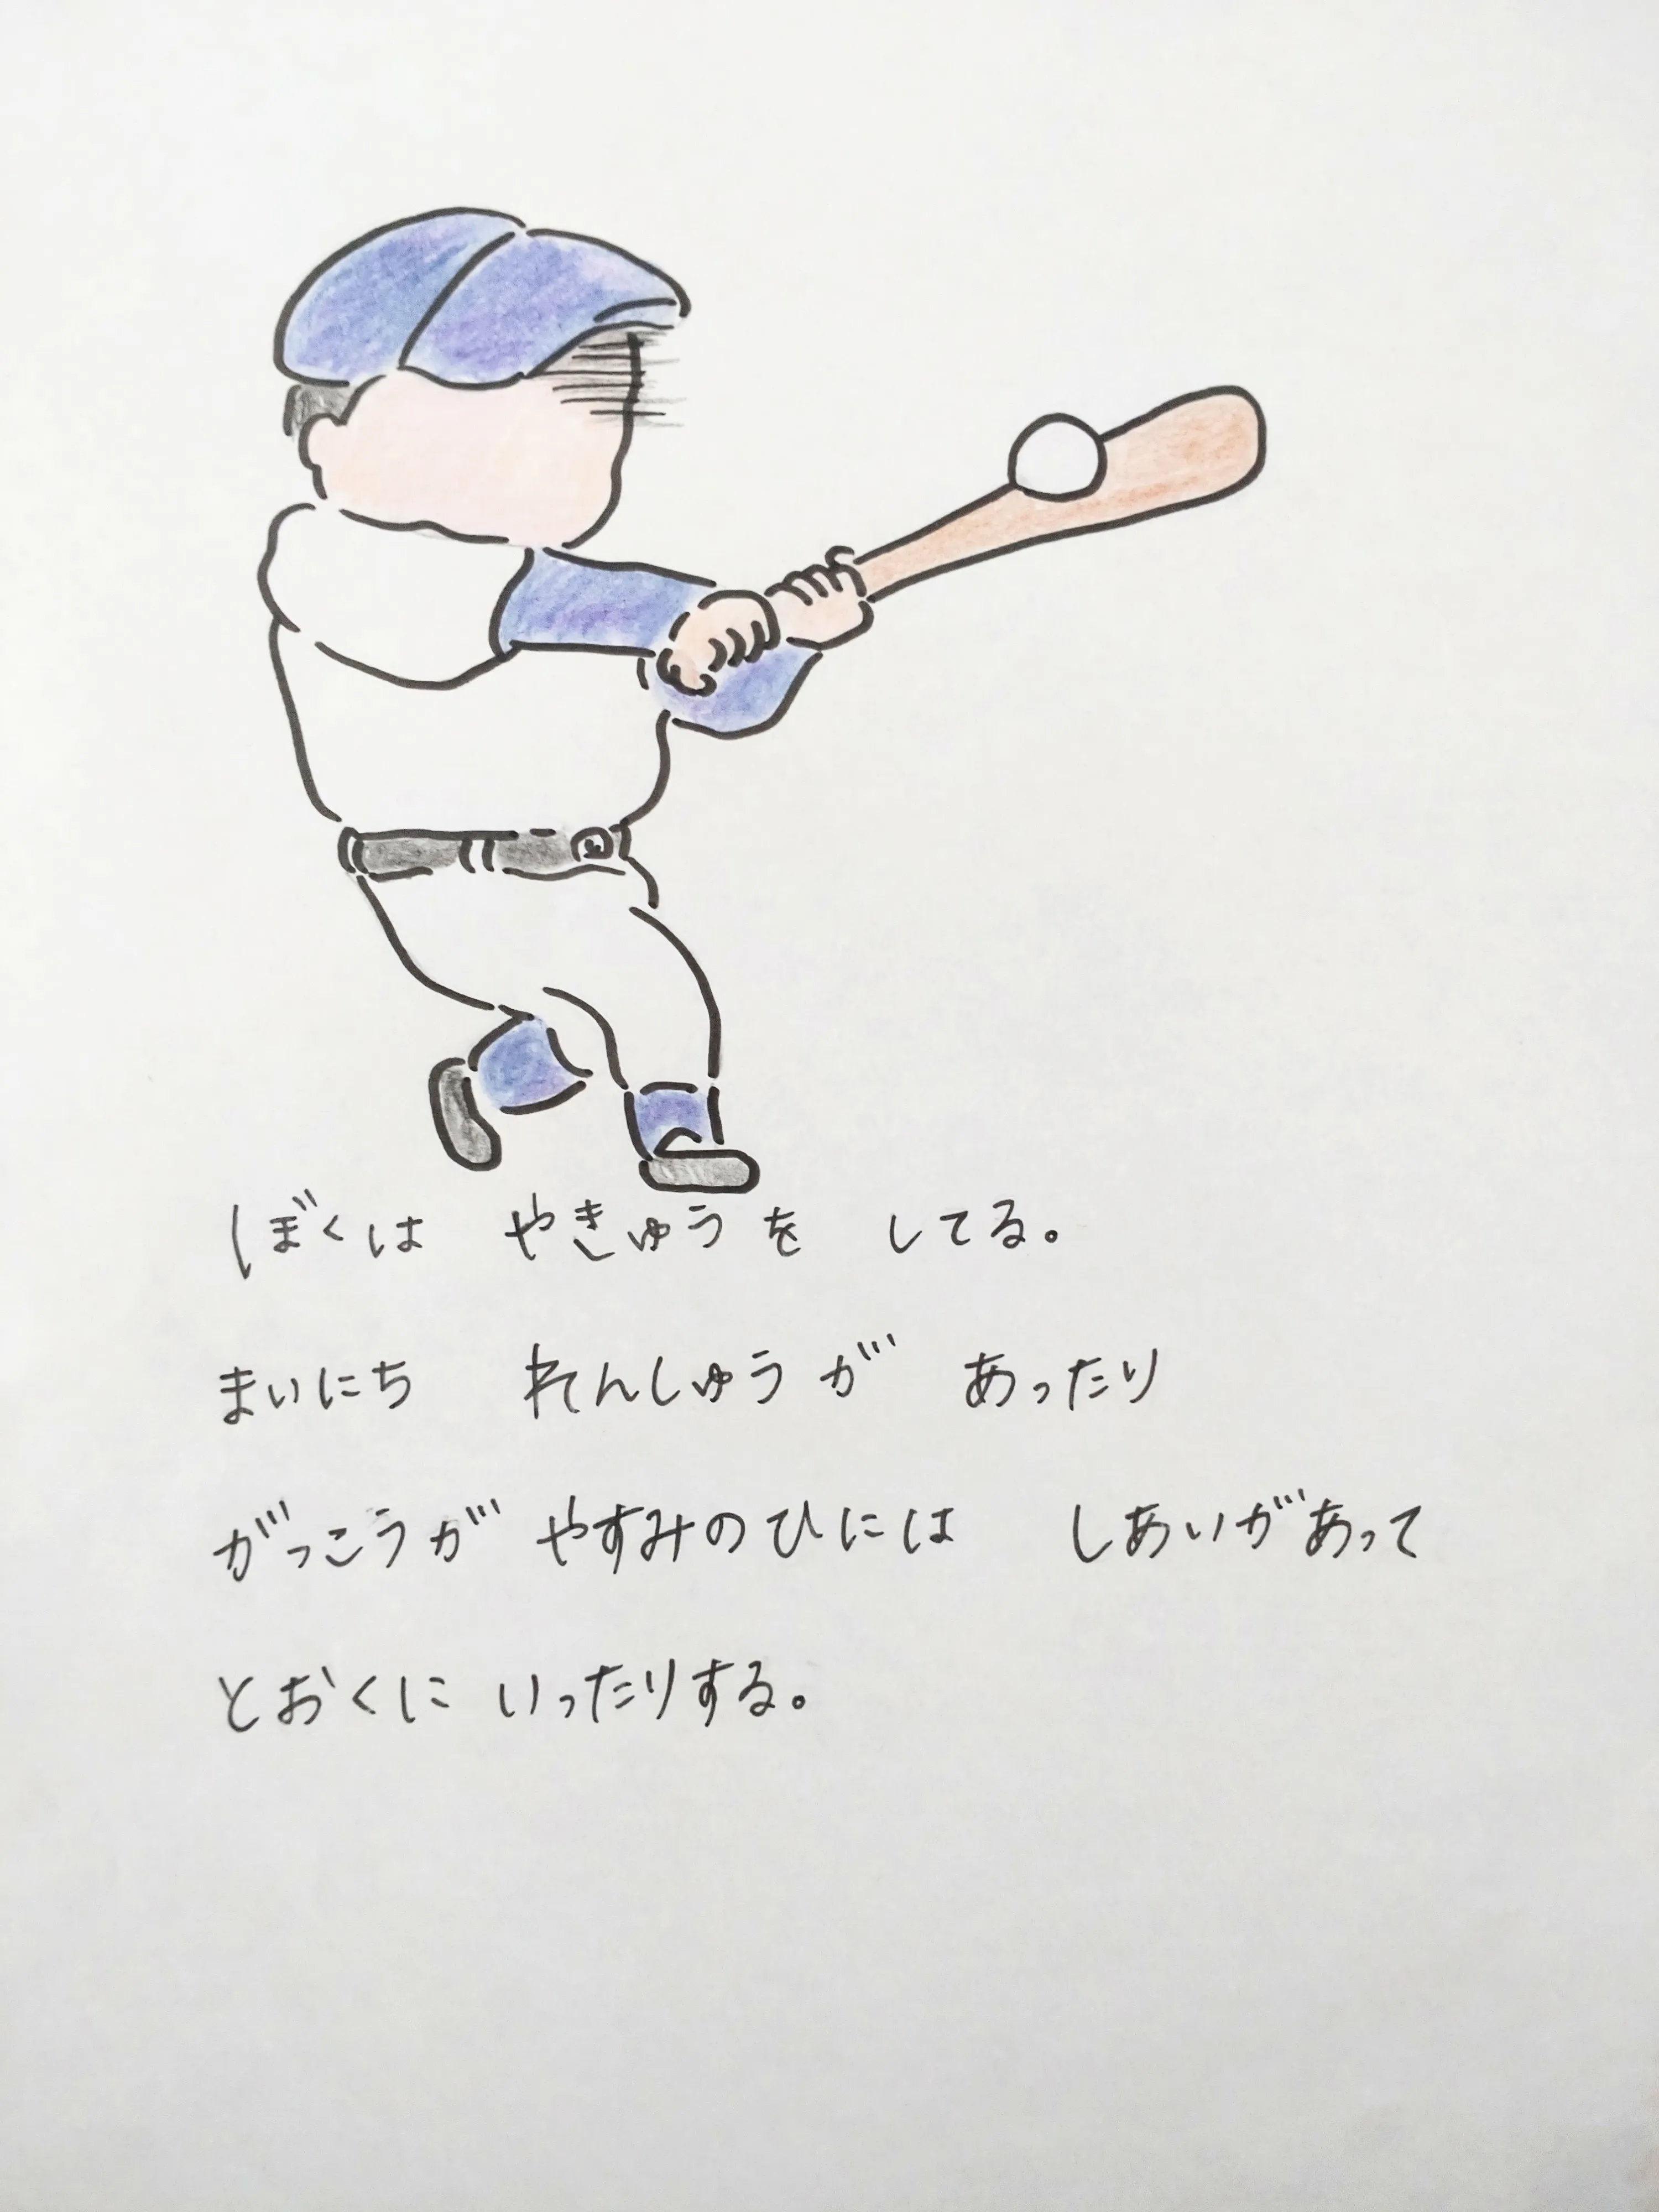 ぼくは やきゅうを してる。
まいにち れんしゅうが あったり
がっこうが やすみのひには しあいがあって
とおくに いったりする。